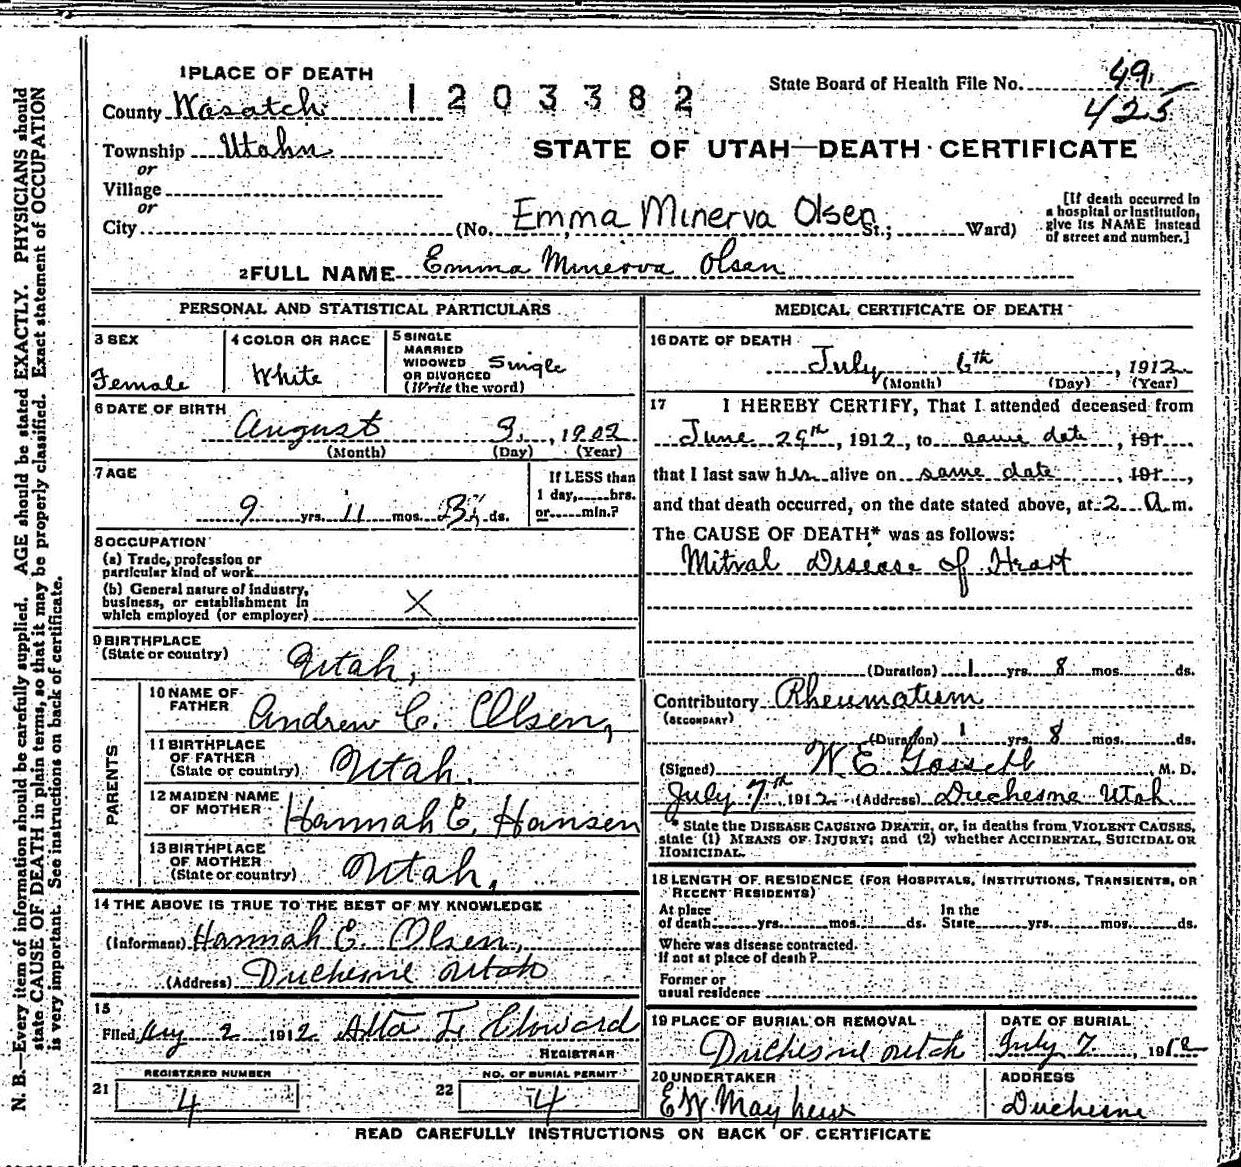 1 PLACE OF DEATH
County Wasatch
1203382
State Board of Health File No. 49
425
Township Utahn
or
Village
or
City
STATE OF UTAH—DEATH CERTIFICATE
(No. Emma Minerva Olsen St.; Ward)
[If death occurred in
a hospital or institution,
give its NAME instead
of street and number.]
2 FULL NAME Emma Minerva Olsen
PERSONAL AND STATISTICAL PARTICULARS
3 SEX
Female
4 COLOR OR RACE
White
5 SINGLE
MARRIED
WIDOWED
OR DIVORCED
(Write the word)
Single
6 DATE OF BIRTH
August 3, 1902
(Month) (Day) (Year)
7 AGE
9 yrs. 11 mos. 3 ds.
If LESS than
1 day, hrs.
or min.?
8 OCCUPATION
(a) Trade, profession or
particular kind of work
(b) General nature of industry,
business, or establishment in
which employed (or employer) X
9 BIRTHPLACE
(State or country) Utah,
PARENTS
10 NAME OF
FATHER Andrew C. Olsen,
11 BIRTHPLACE
OF FATHER
(State or country) Utah.
12 MAIDEN NAME
OF MOTHER Hannah E. Hansen
13 BIRTHPLACE
OF MOTHER
(State or country) Utah,
14 THE ABOVE IS TRUE TO THE BEST OF MY KNOWLEDGE
(Informant) Hannah E. Olsen,
(Address) Duchesne Utah
15
Filed Aug 2 1912 Alta L. Cloward
REGISTRAR
REGISTERED NUMBER
21 4
NO. OF BURIAL PERMIT
22 4
MEDICAL CERTIFICATE OF DEATH
16 DATE OF DEATH
July 6th, 1912
(Month) (Day) (Year)
17 I HEREBY CERTIFY, That I attended deceased from
June 29th, 1912, to same date, 191
that I last saw her alive on same date, 191,
and that death occurred, on the date stated above, at 2 A m.
The CAUSE OF DEATH* was as follows:
Mitral Disease of Heart
(Duration) 1 yrs. 8 mos. ds.
Contributory Rheumatism
(SECONDARY)
(Duration) 1 yrs. 8 mos. ds.
(Signed) W E Gossett M. D.
July 7th 1912 (Address) Duchesne Utah
* State the DISEASE CAUSING DEATH, or, in deaths from VIOLENT CAUSES,
state (1) MEANS OF INJURY; and (2) whether ACCIDENTAL, SUICIDAL OR
HOMICIDAL.
18 LENGTH OF RESIDENCE (FOR HOSPITALS, INSTITUTIONS, TRANSIENTS, OR
RECENT RESIDENTS)
At place
of death yrs. mos. ds.
In the
State yrs. mos. ds.
Where was disease contracted.
If not at place of death?
Former or
usual residence
19 PLACE OF BURIAL OR REMOVAL
Duchesne Utah
DATE OF BURIAL
July 7, 1912
20 UNDERTAKER
E W Mayhew
ADDRESS
Duchesne
READ CAREFULLY INSTRUCTIONS ON BACK OF CERTIFICATE
N. B.—Every item of information should be carefully supplied. AGE should be stated EXACTLY. PHYSICIANS should
state CAUSE OF DEATH in plain terms, so that it may be properly classified. Exact statement of OCCUPATION
is very important. See instructions on back of certificate.